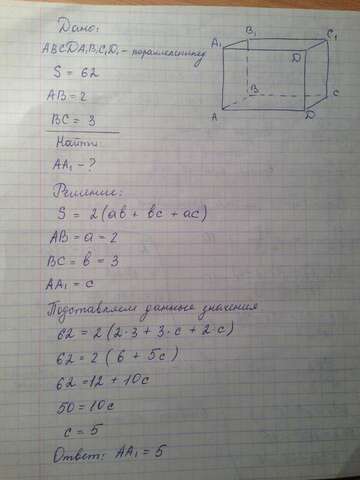 Дано:
ABCDA₁B₁C₁D₁ - параллепипед
S = 62
AB = 2
BC = 3
Найти:
AA₁ - ?
Решение:
S = 2(ab + bc + ac)
AB = a = 2
BC = b = 3
AA₁ = c
Подставляем данные значения
62 = 2(2·3 + 3·c + 2·c)
62 = 2(6 + 5c)
62 = 12 + 10c
50 = 10c
c = 5
Ответ: AA₁ = 5
B₁
C₁
A₁
D
B
C
A
D